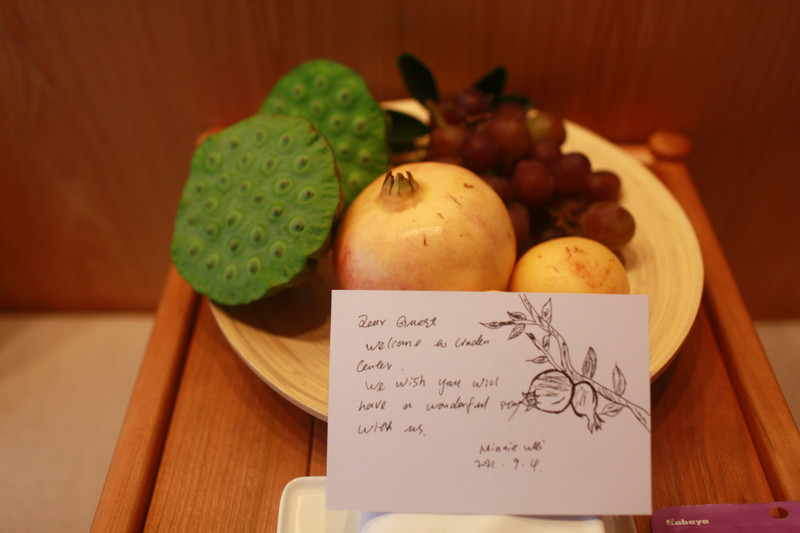 Dear Guest
Welcome to Linden
Center.
We wish you will
have a wonderful stay
with us.
Minnie
2021. 9. 4.
Kabaya